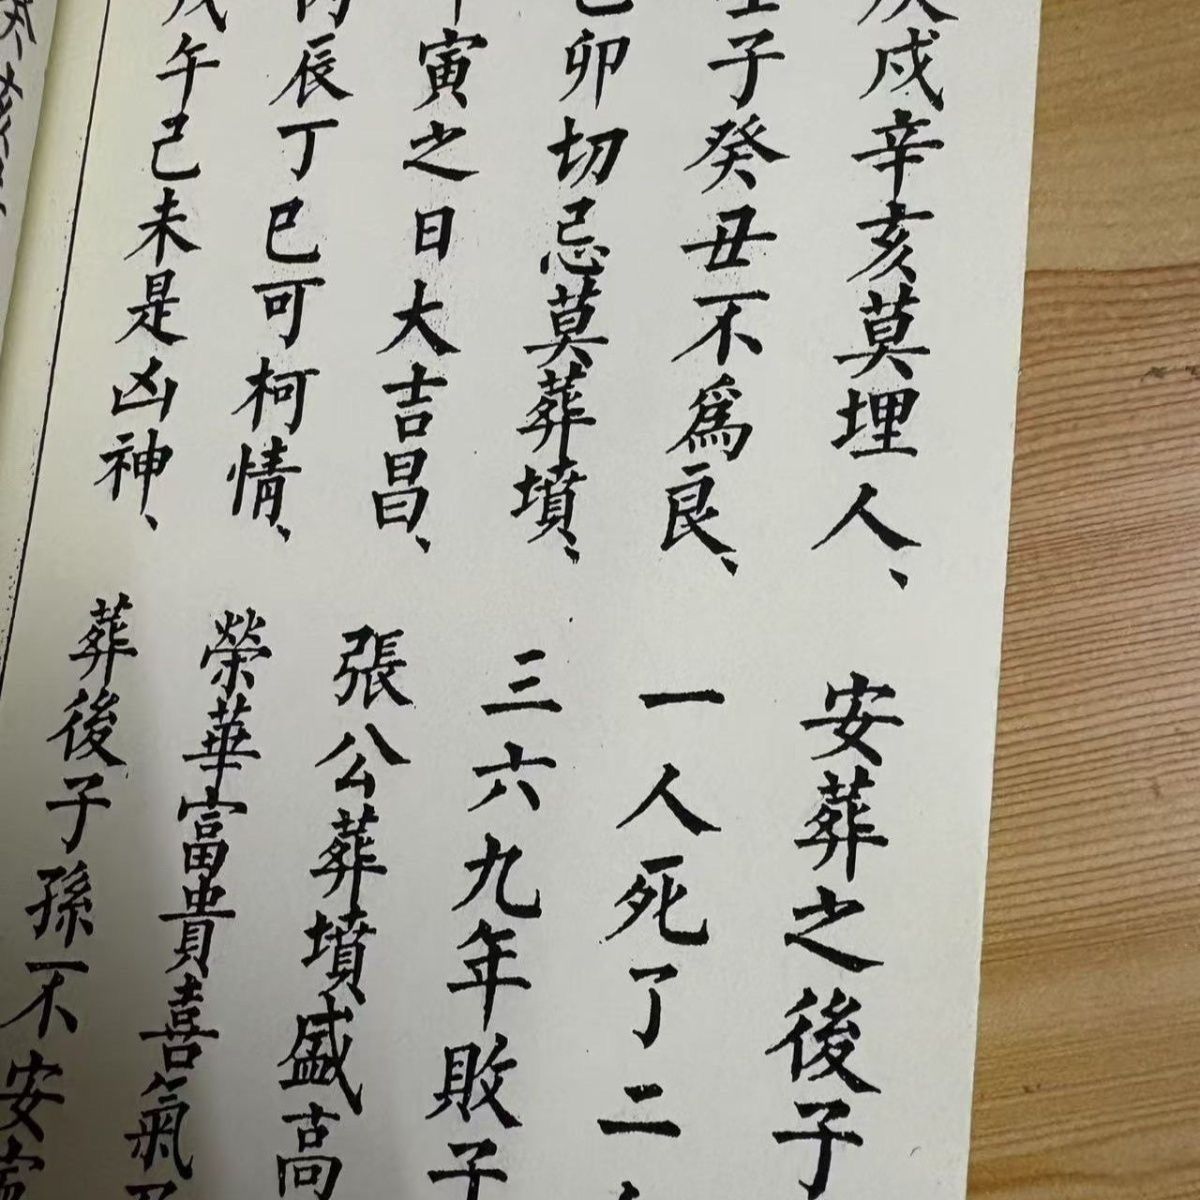 戌辛亥莫埋人、
子癸丑不為良、
卯切忌莫葬墳、
寅之日大吉昌、
辰丁巳可柯情、
午己未是凶神、
安葬之後子
一人死了二
三六九年敗子
張公葬墳盛高
榮華富貴喜氣
葬後子孫不安